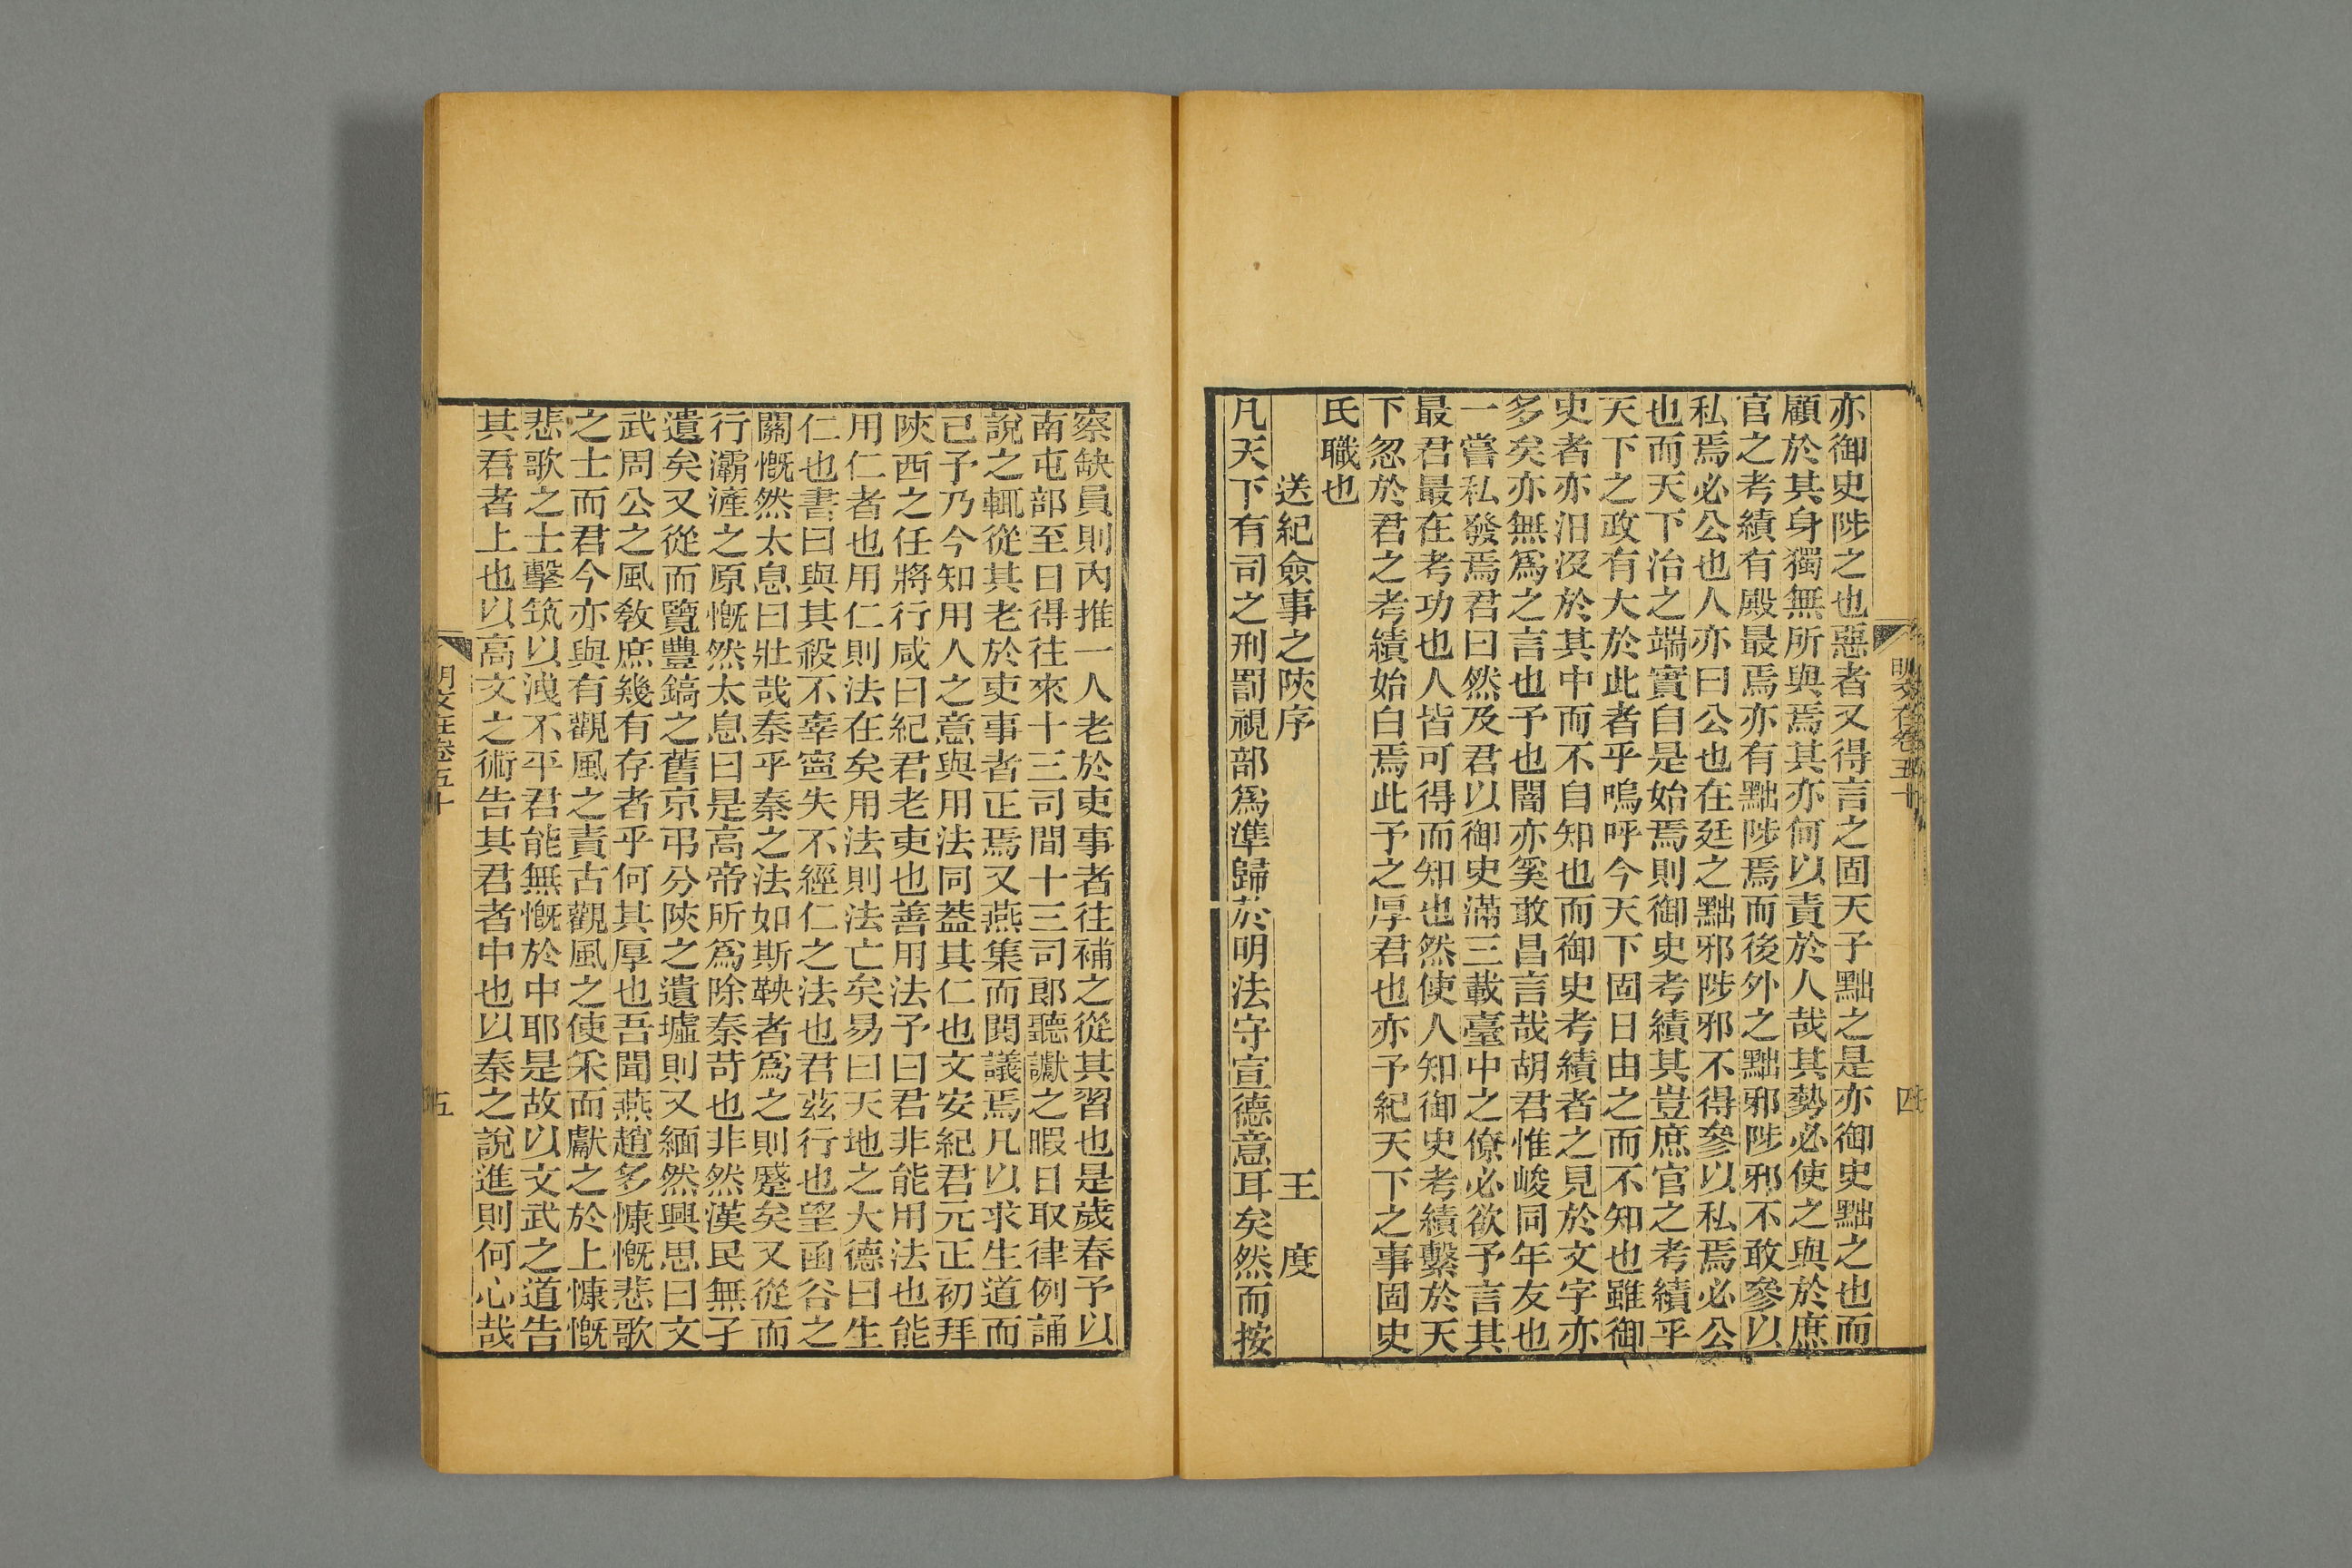 亦御史陟之也惡者又得言之固天子黜之是亦御史黜之也而
顧於其身獨無所與焉其亦何以責於人哉其勢必使之與於庶
官之考績有殿最焉亦有黜陟焉而後外之黜邪陟邪不敢參以
私焉必公也人亦曰公也在廷之黜邪陟邪不得參以私焉必公
也而天下治之端實自是始焉則御史考績其豈庶官之考績乎
天下之政有大於此者乎嗚呼今天下固日由之而不知也雖御
史者亦汨沒於其中而不自知也而御史考績者之見於文字亦
多矣亦無爲之言也予也闇亦奚敢昌言哉胡君惟峻同年友也
一嘗私發焉君曰然及君以御史滿三載臺中之僚必欲予言其
最君最在考功也人皆可得而知也然使人知御史考績繫於天
下忽於君之考績始白焉此予之厚君也亦予紀天下之事固史
氏職也
送紀僉事之陝序 王度
凡天下有司之刑罰視部爲準歸於明法守宣德意耳矣然而按
明文在卷五十 四
察缺員則內推一人老於吏事者往補之從其習也是歲春予以
南屯部至日得往來十三司間十三司郎聽讞之暇日取律例誦
說之輒從其老於吏事者正焉又燕集而閎議焉凡以求生道而
已予乃今知用人之意與用法同葢其仁也文安紀君元正初拜
陝西之任將行咸曰紀君老吏也善用法予曰君非能用法也能
用仁者也用仁則法在矣用法則法亡矣易曰天地之大德曰生
仁也書曰與其殺不辜寧失不經仁之法也君茲行也望函谷之
關慨然太息曰壯哉秦乎秦之法如斯鞅者爲之則蹙矣又從而
行灞滻之原慨然太息曰是高帝所爲除秦苛也非然漢民無孑
遺矣又從而覽豐鎬之舊京弔分陝之遺墟則又緬然興思曰文
武周公之風敎庶幾有存者乎何其厚也吾聞燕趙多慷慨悲歌
之士而君今亦與有觀風之責古觀風之使采而獻之於上慷慨
悲歌之士擊筑以洩不平君能無慨於中耶是故以文武之道告
其君者上也以高文之術告其君者中也以秦之說進則何心哉
明文在卷五十 五